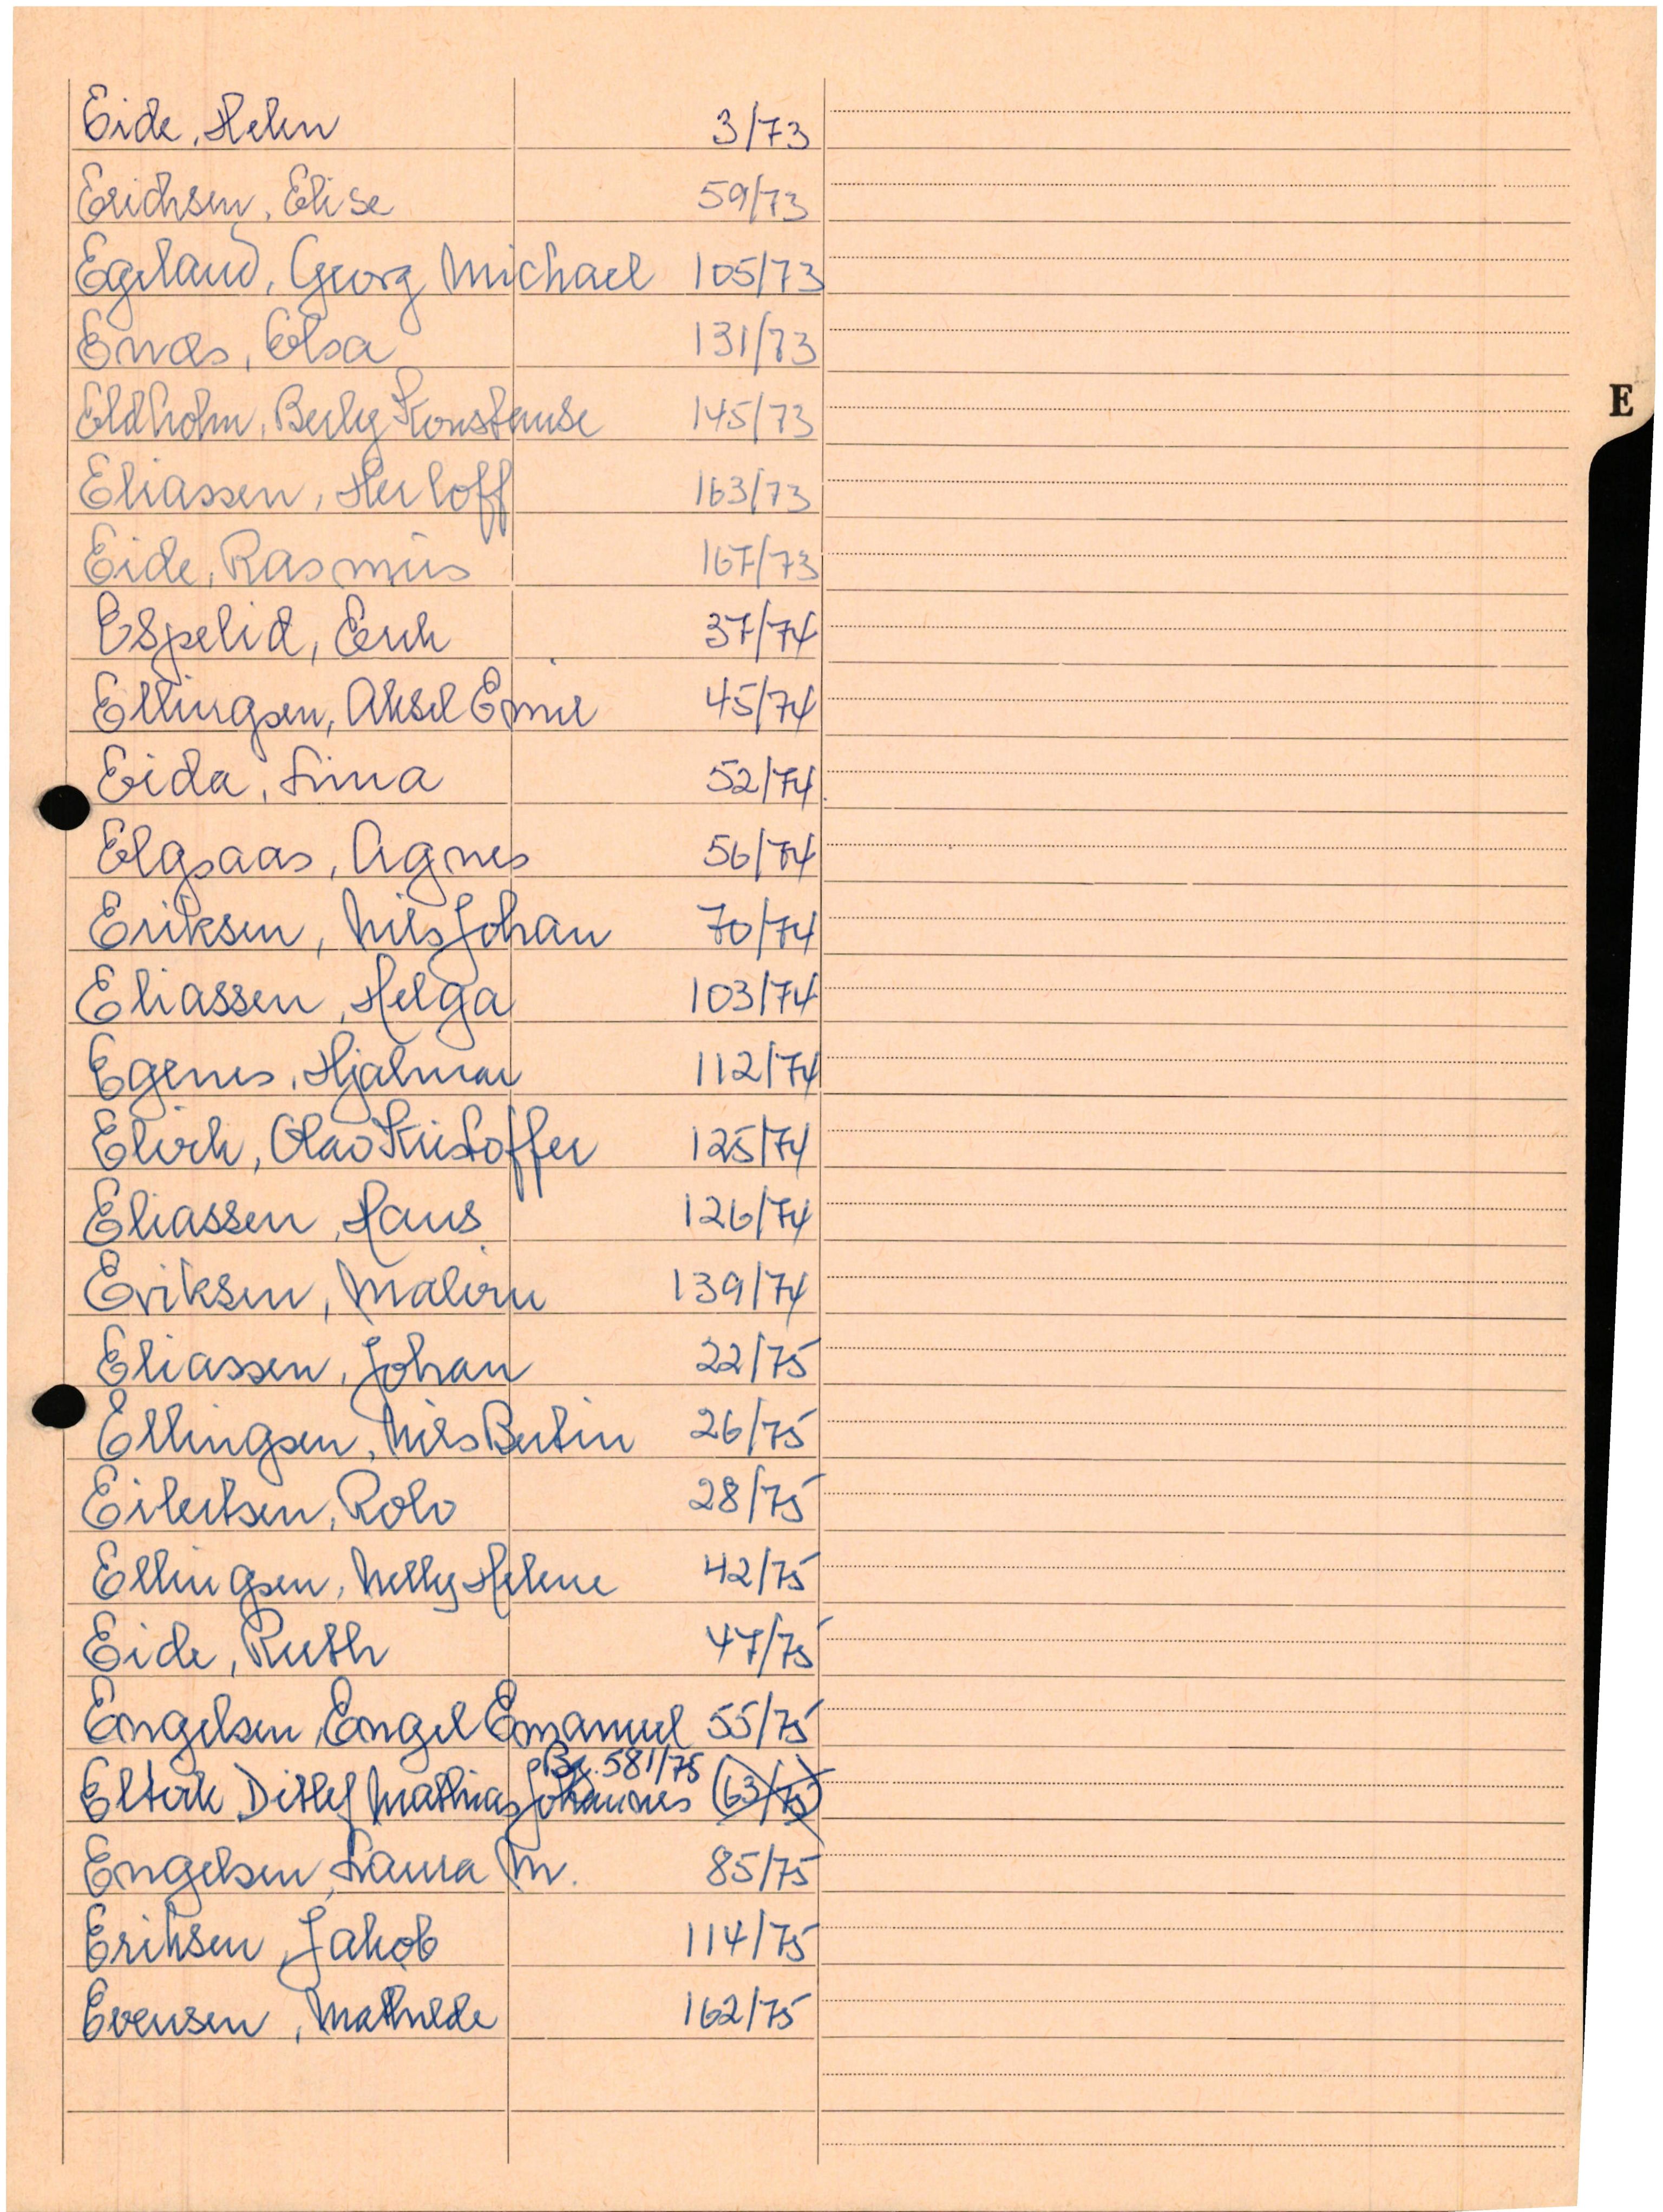 Eide, Helen 3/73
Erichsen, Elise 59/73
Egeland, Georg Michael 105/73
Enæs, Elsa 131/73
Eldholm, Berly Konstanse 145/73
E
Eliassen, Herloff 163/73
Eide, Rasmus 167/73
Espelid, Erik 37/74
Ellingsen, Aksel Emil 45/74
Eida, Lina 52/74
Elgsaas, Agnes 56/74
Eriksen, Nils Johan 70/74
Eliassen, Helga 103/74
Egenes, Hjalmar 112/74
Elvik, Olav Kristoffer 125/74
Eliassen, Hans 126/74
Eriksen, Malene 139/74
Eliassen, Johan 22/75
Ellingsen, Nils Bertin 26/75
Eilertsen, Rolv 28/75
Ellingsen, Nelly Helene 42/75
Eide, Ruth 47/75
Engelsen, Engel Emanuel 55/75
Br. 581/75
Ditlef Mathias Johannes 63/75
Engelsen, Laura M. 85/75
Eriksen, Jakob 114/75
Evensen, Mathilde 162/75